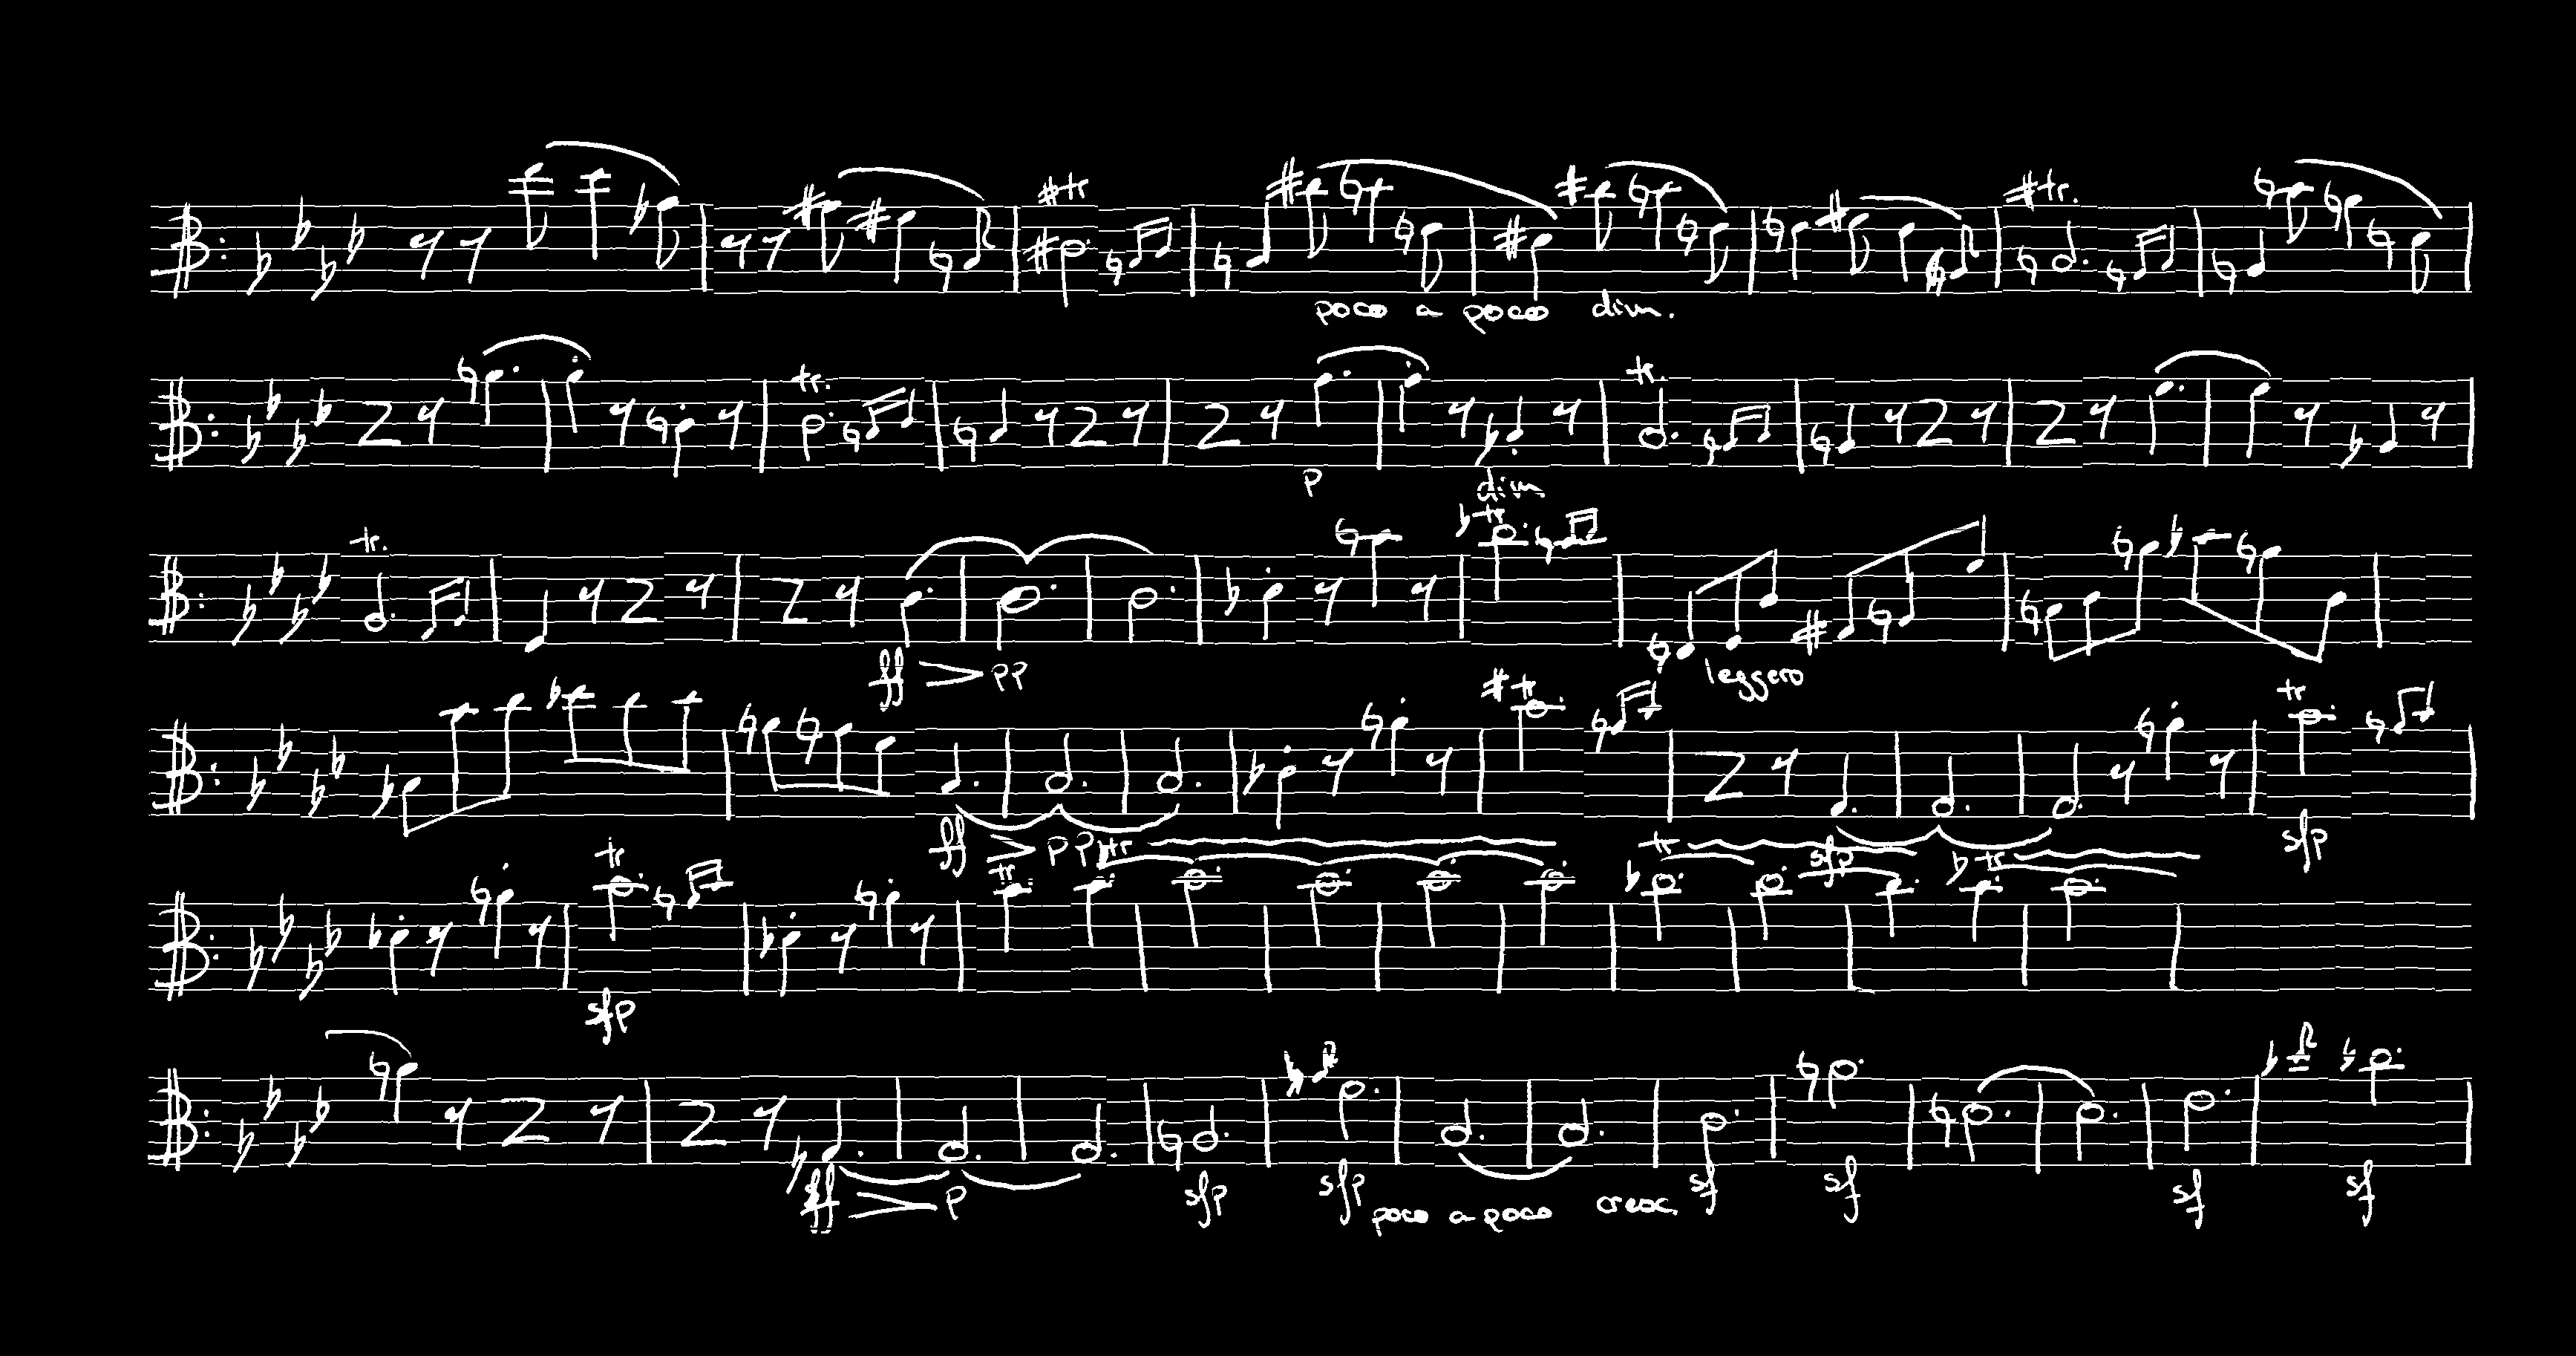 #tr #tr.
poco a poco dim.
tr. tr.
p dim
tr. ♭tr
ff > pp leggero
#tr tr
ff > pp sfp sfp
tr tr tr tr ♭tr
sfp
ff > p sfp sfp poco a poco cresc. sf sf sf sf